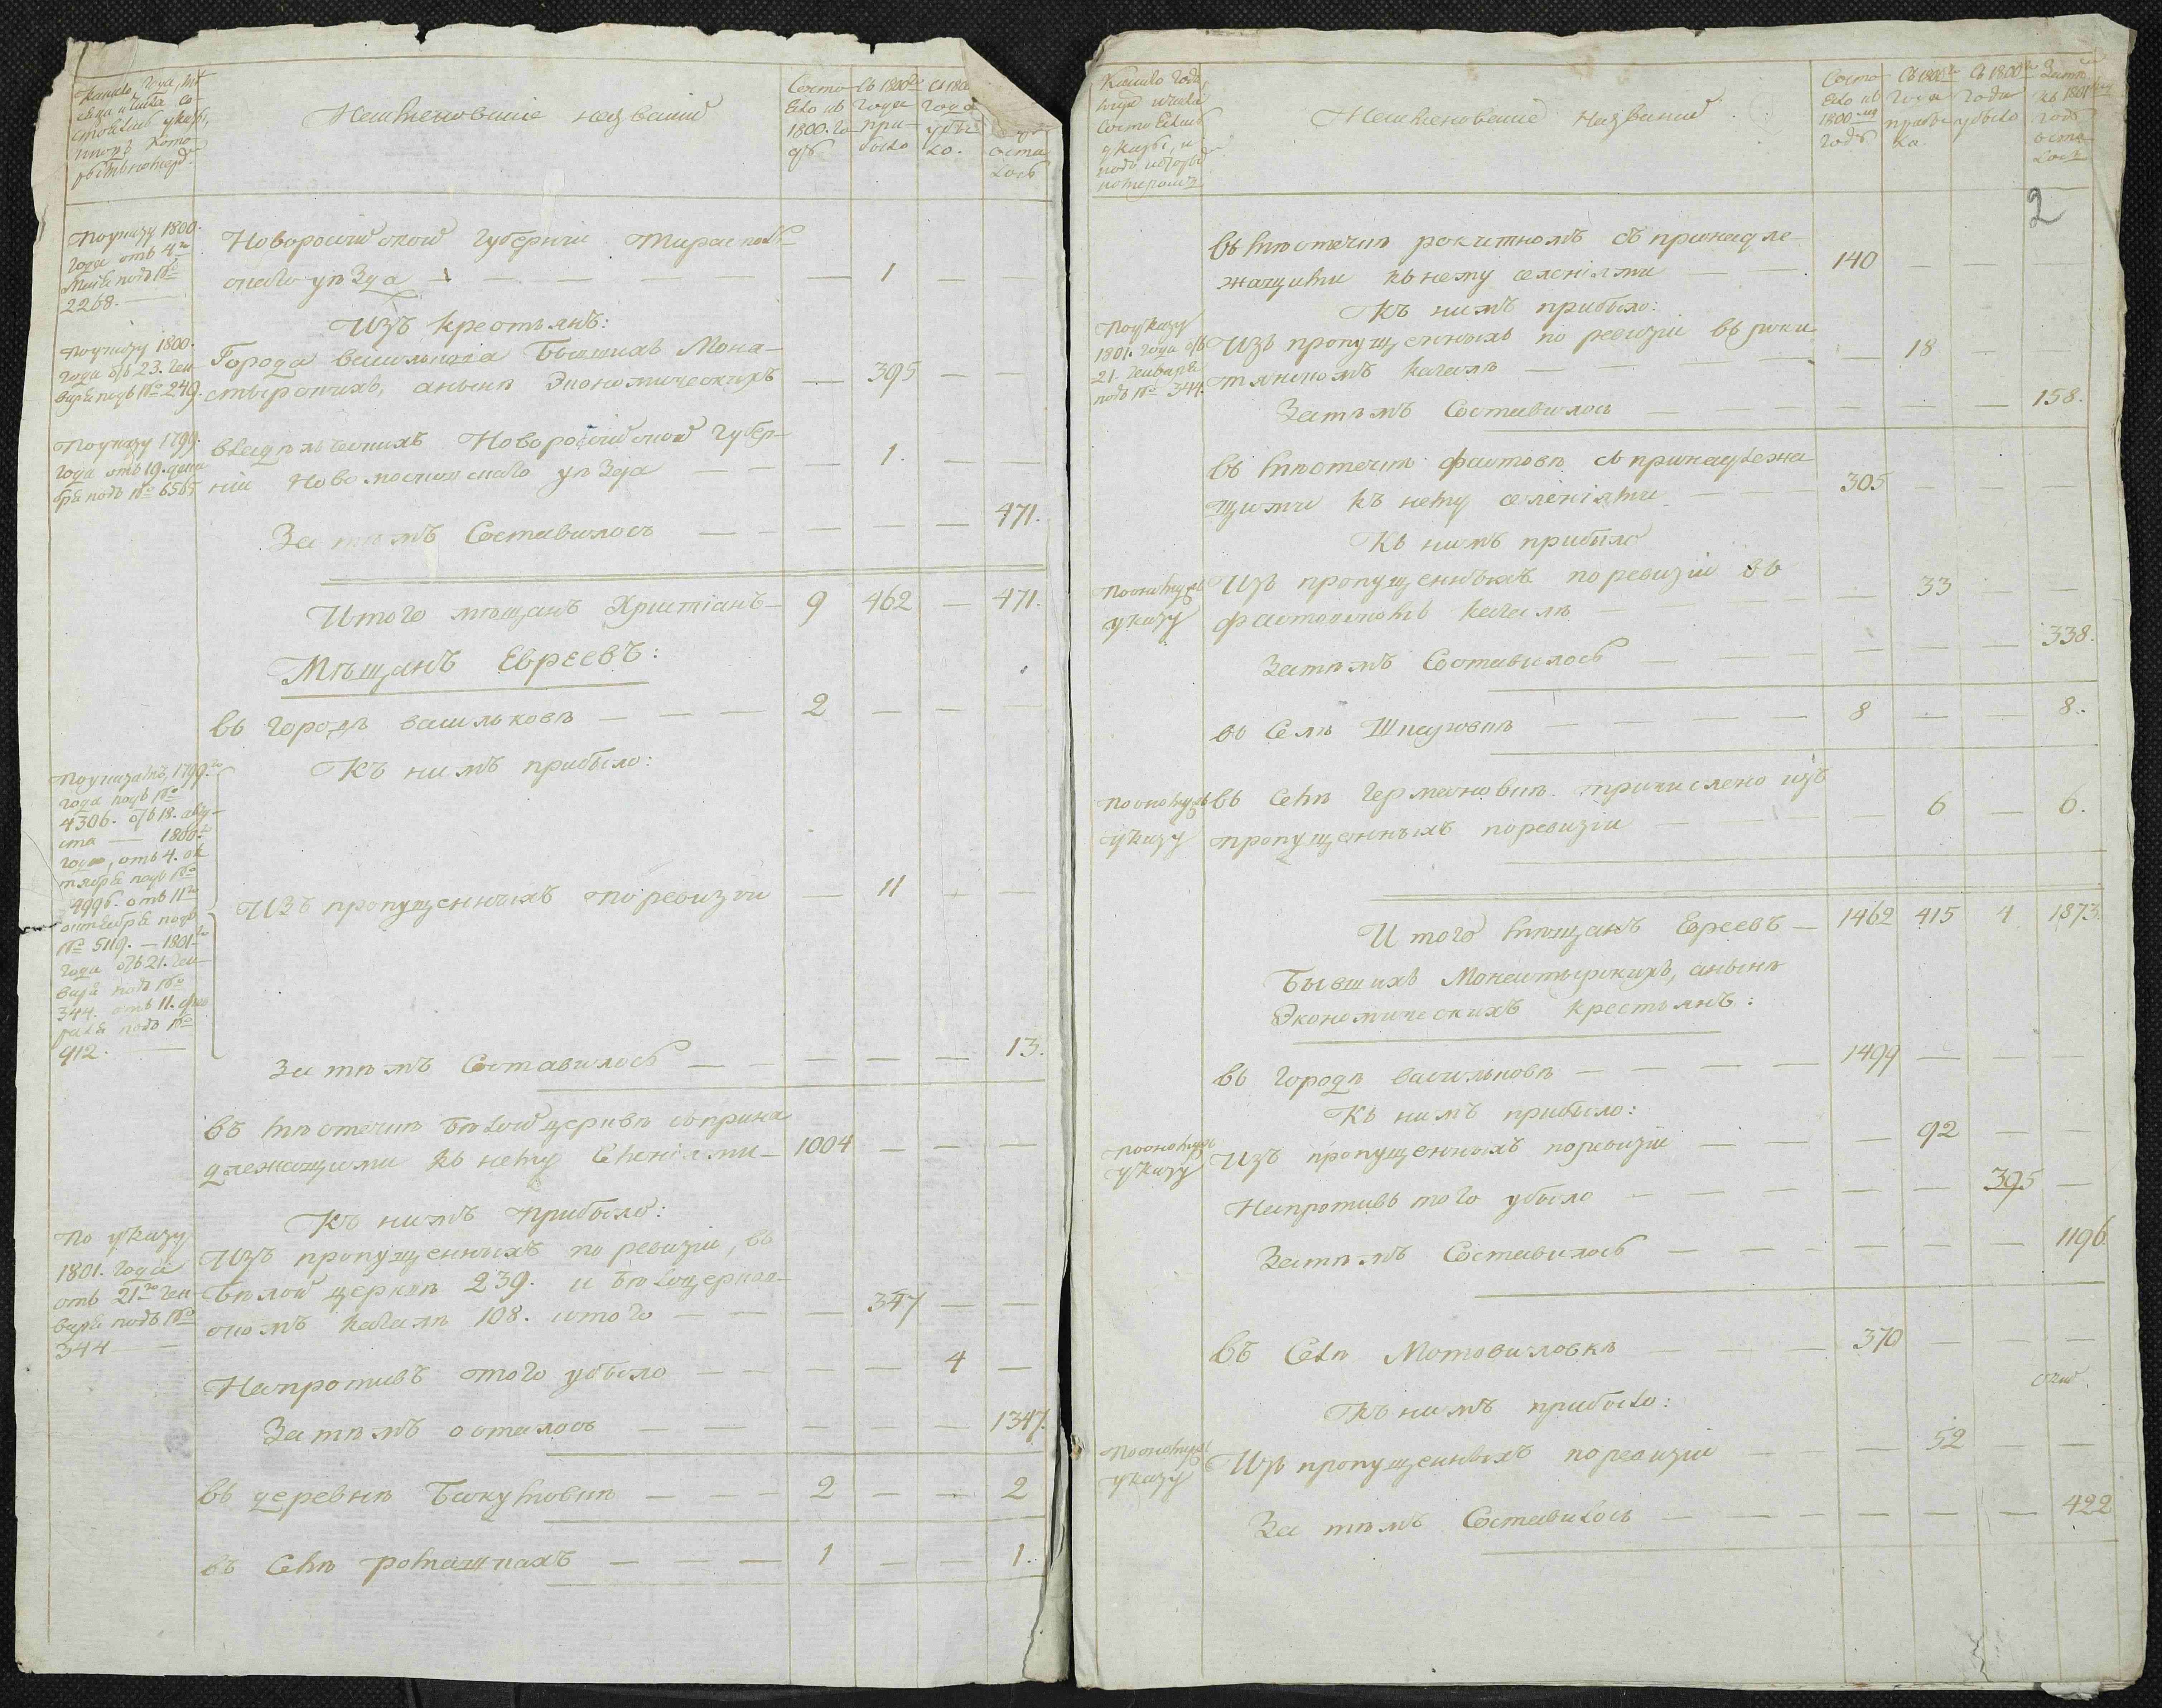 Какого года, мѣ
сяца и числа со
стоялись указы,
и подъ кото
рымъ номеромъ
Наименованіе названій
Состо
яло въ
1800. го
дѣ.
Съ 1800го
года
при
было
Съ 180
года
убы
ло.
оста
лось
По указу 1800.
года отъ 4го
Маія подъ №
2268.
Новоросійской Губерніи Тираспольс
скаго уѣзда — 1 —
Изъ крестьянъ:
По указу 1800.
года отъ 23. Ген
варя подъ № 249.
Города Василькова бывшихъ Мона-
стырскихъ, анынѣ Экономическихъ — 395 — —
По указу 1799.
года отъ 19. дека
бря подъ № 6585
владѣльческихъ Новоросійской Губер-
ніи Новомосковскаго уѣзда — 1. — —
За тѣмъ Составилось — — — — 471.
Итого мѣщанъ Христіанъ — 9 462 — 471.
Мѣщанъ Евреевъ:
въ Городѣ Васильковѣ — 2 — — —
Къ нимъ прибыло:
По указамъ, 1799го
года подъ №
4306. отъ 18. авгу-
ста — 1800го
года, отъ 4. ок
тября подъ №
4996. отъ 11го
октября подъ
№ 5119. — 1801го
года отъ 21. Ген-
варя подъ №
344. отъ 11. фев
раля подъ №
912.
Изъ пропущенныхъ по ревизіи — 11 — —
За тѣмъ Составилось — — — — 13.
въ мѣстечкѣ Бѣлой церквѣ съ прина
длежащими къ нему Селеніями — 1004 — — —
Къ нимъ прибыло:
По указу
1801. Года
отъ 21го Ген
варя подъ №
344
Изъ пропущенныхъ по ревизіи, въ
Бѣлой церквѣ 239. и Бѣлоцерков-
скомъ кагалѣ 108. итого — — 347 — —
Напротивъ того убыло — — — 4 —
За тѣмъ осталось — — — — 1347.
въ деревнѣ Бакумовкѣ — 2 — — 2
въ Селѣ ромашкахъ — 1 — — 1.
Какого Года,
мѣсяца и числа
Состоялись
указы, и
подъ которымъ
номеромъ
Наименованіе Названій
Состо
яло въ
1800мъ
Годѣ
Съ 1800го
Года
прибы
ло
Съ 1800го
Года
убыло
Затѣмъ
къ 1801му
Году
оста
лось
2
въ мѣстечкѣ рокитномъ съ принадле
жащими къ нему селеніями — 140 — — —
Къ нимъ прибыло:
По указу
1801. года отъ
21. Генваря
подъ № 344.
Изъ пропущенныхъ по ревизіи въ роки
тянскомъ кагалѣ — — 18 —
Затѣмъ Составилось — — — — 158.
въ мѣстечкѣ фастовѣ съ принадлежа
щими къ нему селеніями — 305 — — —
Къ нимъ прибыло
По оному жъ
указу
Изъ пропущенныхъ по ревизіи въ
фастовскомъ кагалѣ — — 33 — —
Затѣмъ Составилось — — — — 338.
въ Селѣ — 8 — — 8.
По оному жъ
указу
въ Селѣ Германовкѣ причислено изъ
пропущенныхъ по ревизіи — — 6 — 6.
Итого мѣщанъ Евреевъ — 1462 415 4 1873.
Бывшихъ Монастырскихъ, анынѣ
Экономическихъ Крестьянъ:
въ Городѣ Васильковѣ — 1499 — — —
Къ нимъ прибыло:
По оному жъ
указу
Изъ пропущенныхъ по ревизіи — — 92 — —
Напротивъ того убыло — — — 395 —
Затѣмъ Составилось — — — — 1196
въ Селѣ Мотовиловкѣ — 370 — — —
Къ нимъ прибыло:
По оному жъ
указу
Изъ пропущенныхъ по ревизіи — — 52 — —
За тѣмъ Составилось — — — — 422